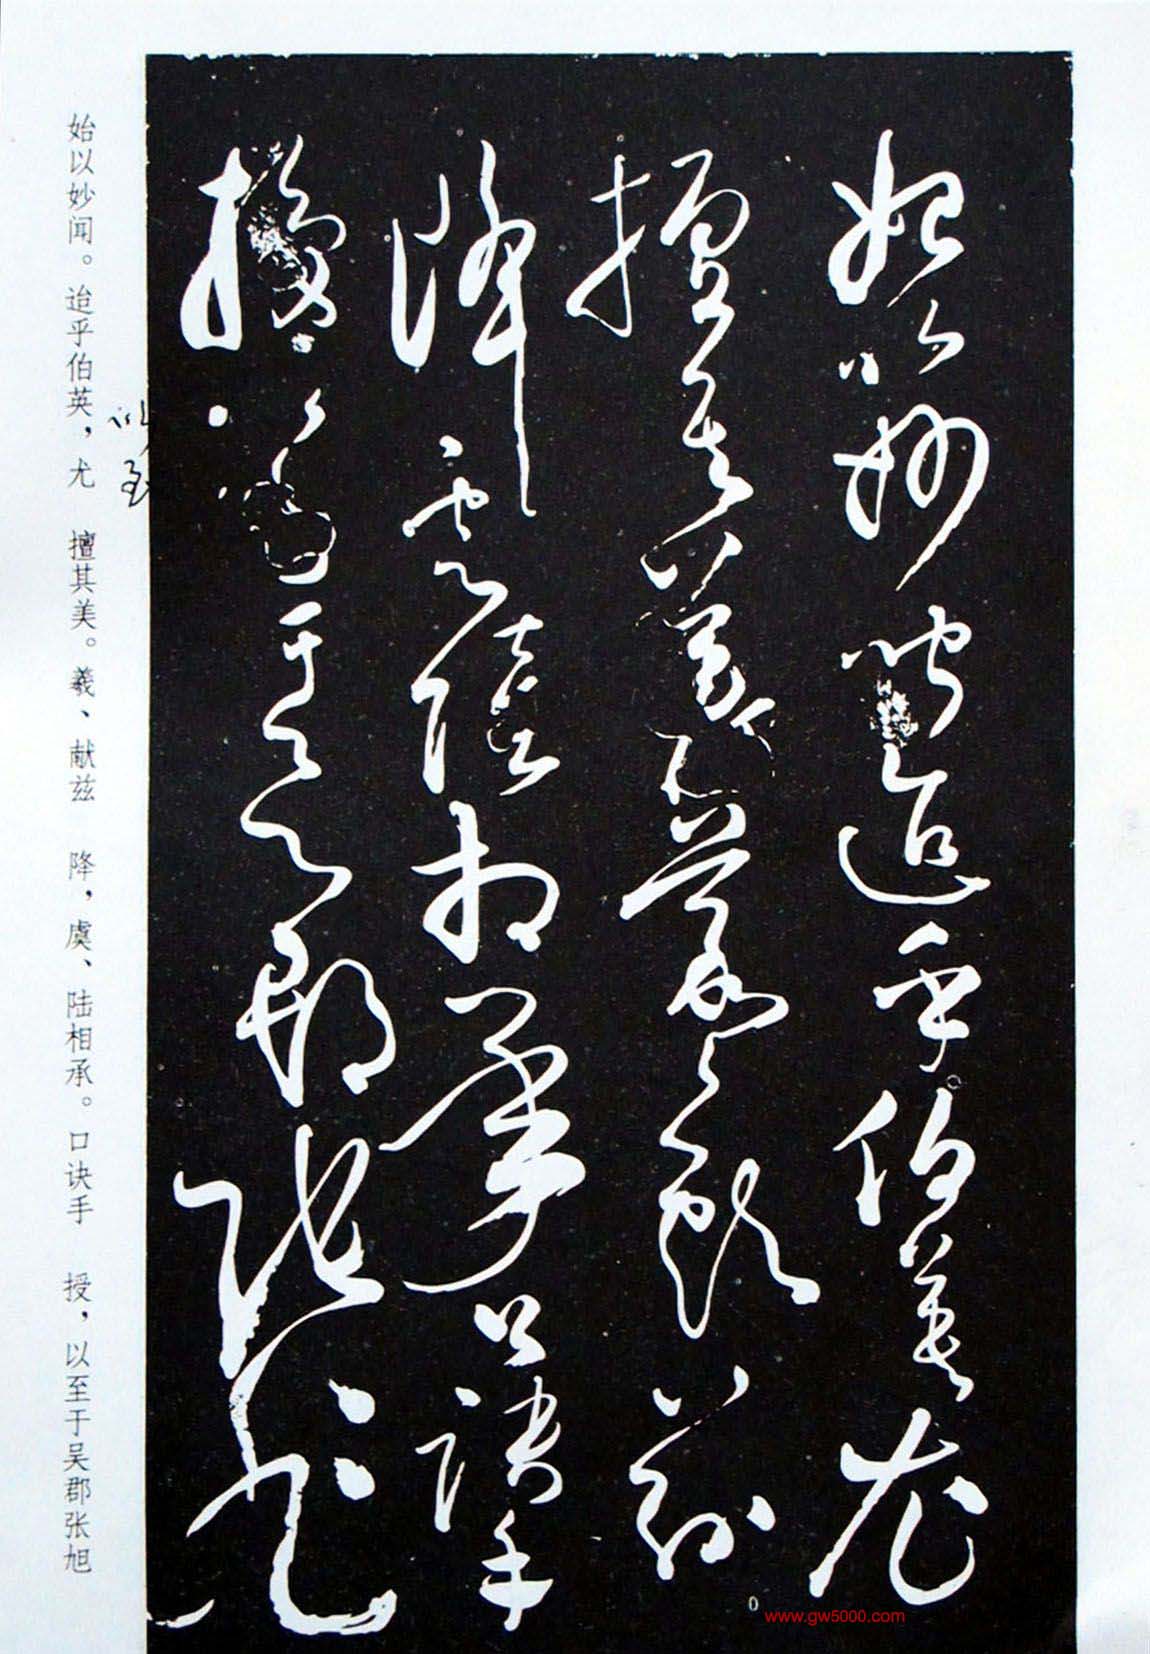 始以妙聞迨乎伯英尤
擅其美羲獻茲
降虞陸相承口訣手
授以至于吳郡張旭
以至
始以妙闻。迨乎伯英，尤 擅其美。羲、献兹 降，虞、陆相承。口诀手 授，以至于吴郡张旭
0
www.gw5000.com